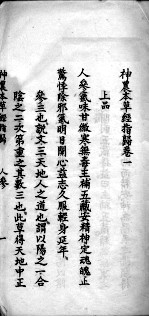 神農本草經指歸卷一
上品
人參氣味甘微寒無毒主補五藏安精神定魂魄止
驚悸除邪氣明目開心益志久服輕身延年
參三也說文三天地人之道也謂以陽之一合
陰之二次第重之其數三也此草得天地中正
神農本草經指歸 人參 一